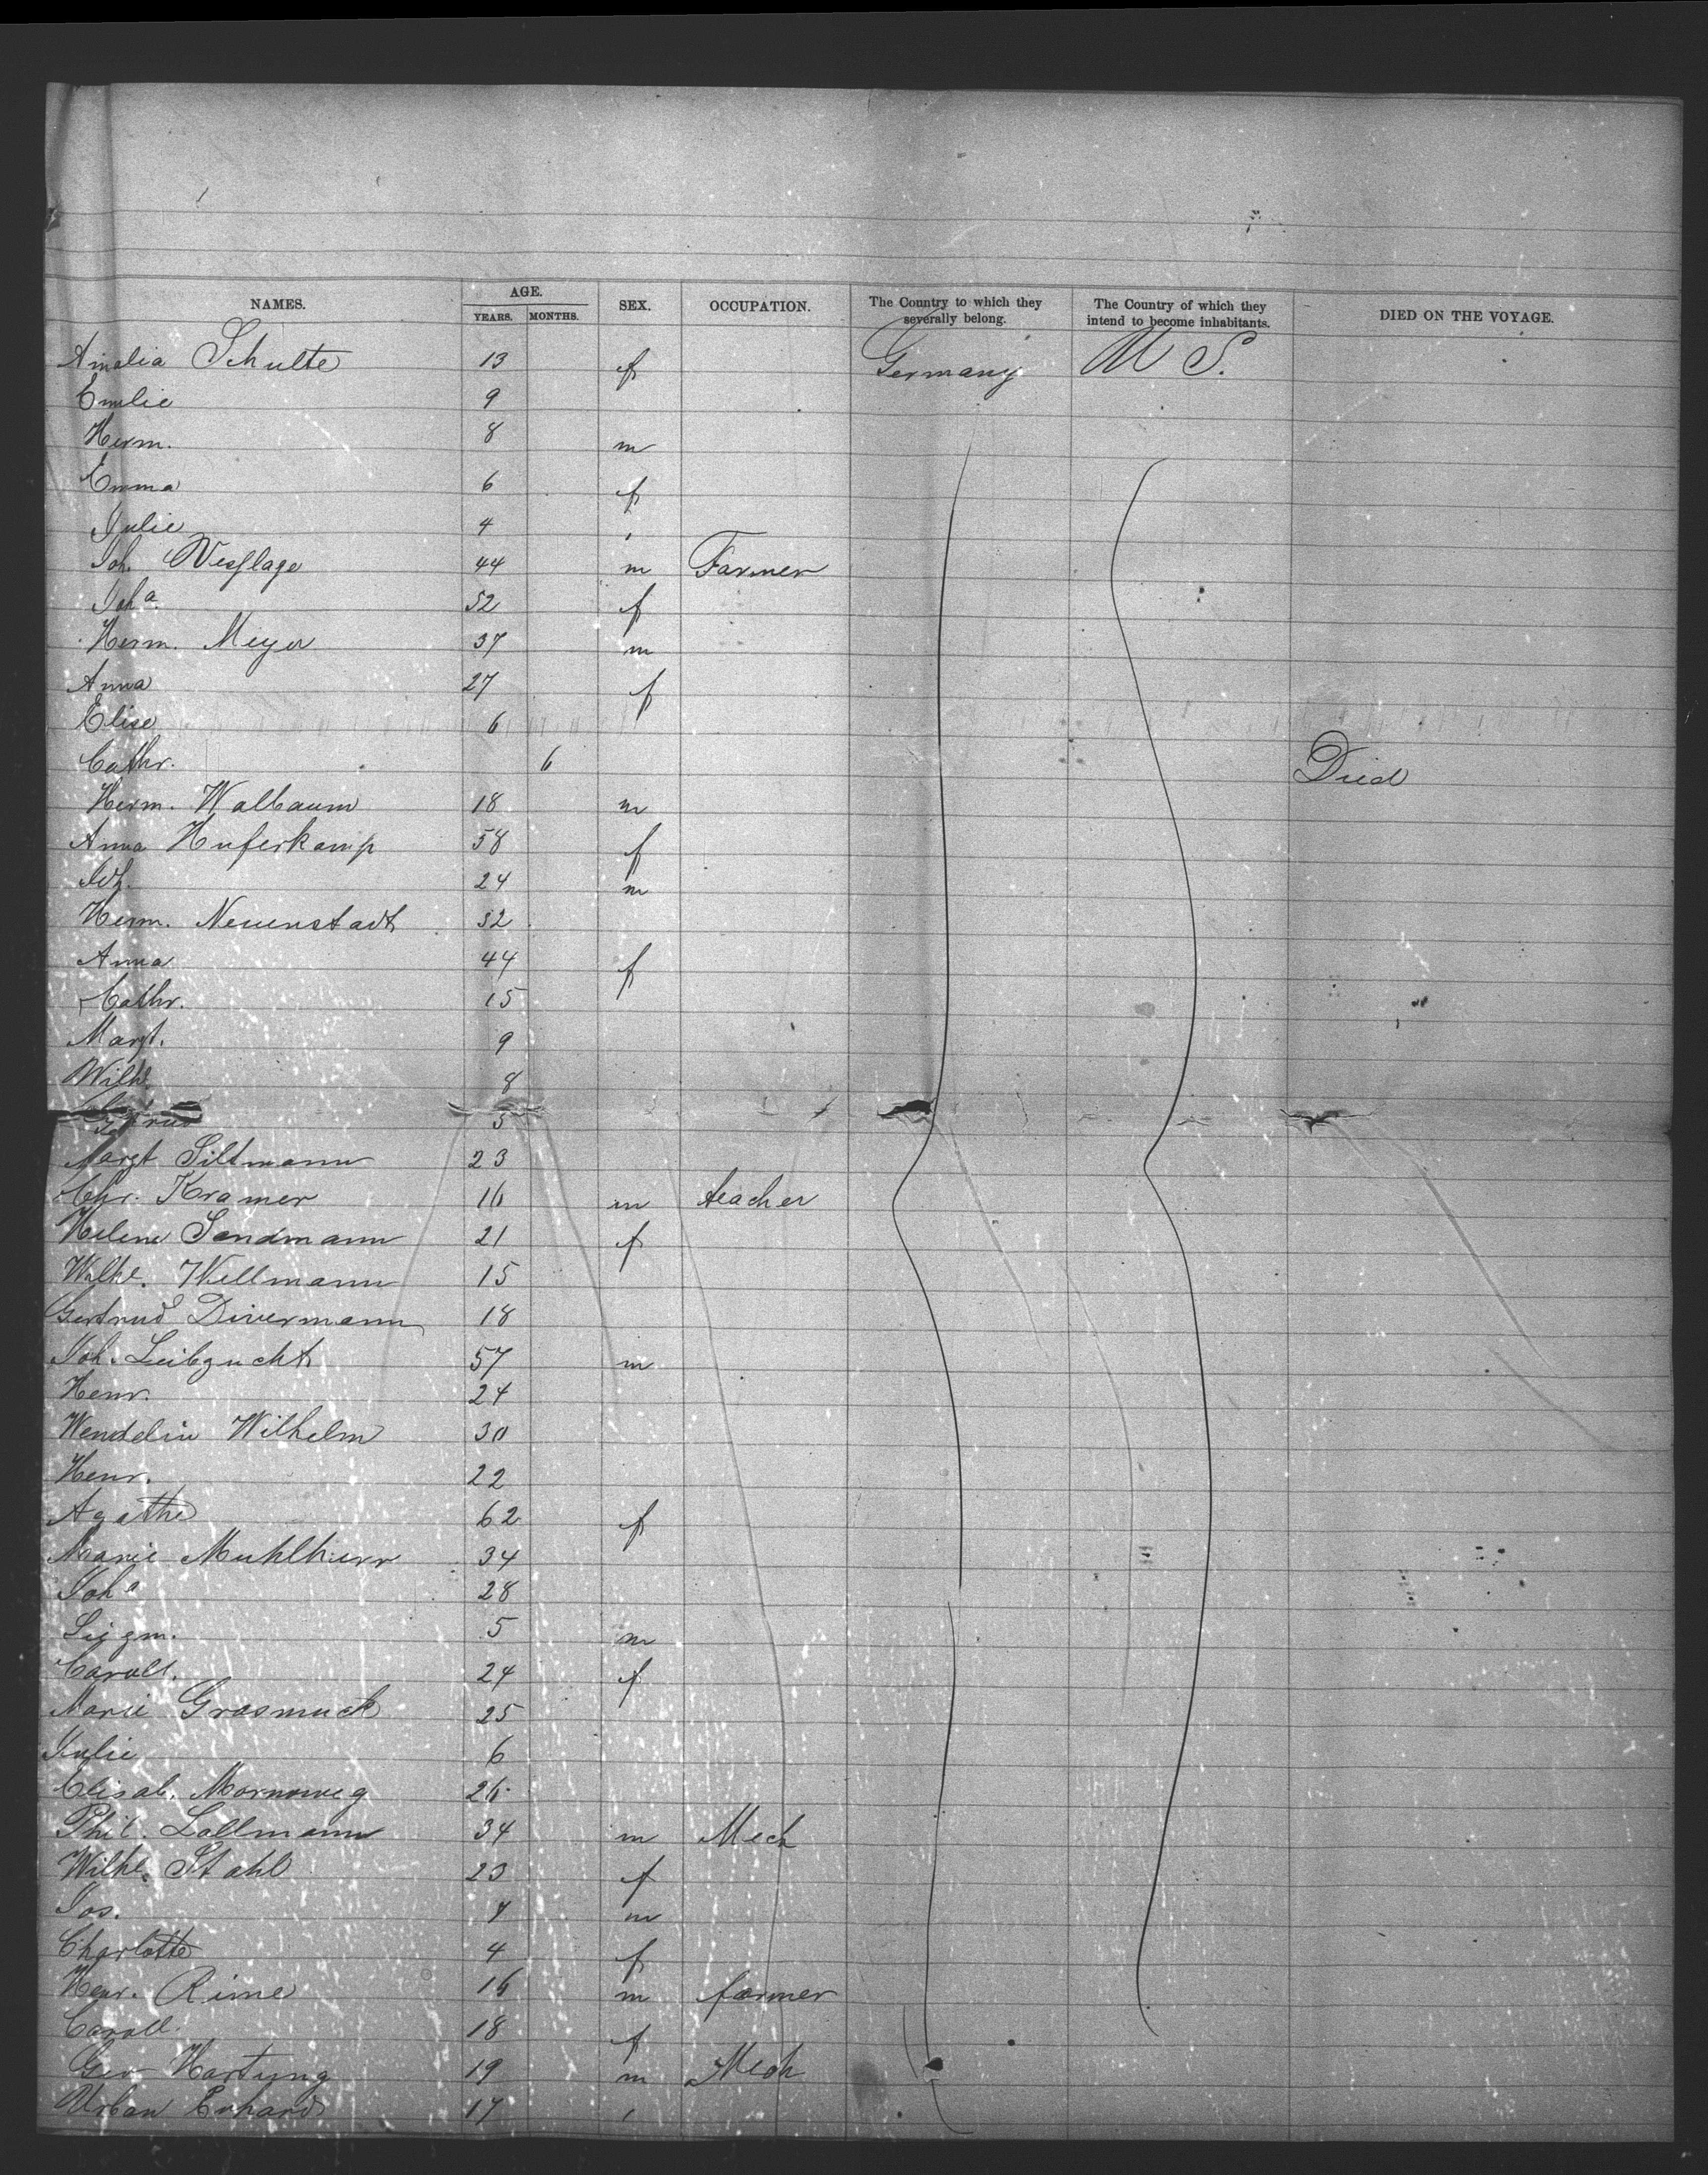 NAMES. AGE. SEX. OCCUPATION. The Country to which they severally belong. The Country of which they intend to become inhabitants. DIED ON THE VOYAGE.
YEARS. MONTHS.
Amalia Schulte 13 f Germany U S.
Emilie 9
Herm. 8 m
Emma 6 f
Julie 4 ,
Joh. Wesflage 44 m Farmer
Joh a. 52 f
Herm. Meyer 37 m
Anna 27 f
Elise 6
Cathr. 6 Died
Herm. Walbaum 18 m
Anna Huferkamp 58 f
Joh. 24 m
Herm. Neuenstadt 52
Anna 44 f
Cathr. 15
Margt. 9
Wilhe. 8
5
Margt Siltmann 23
Chr. Kramer 16 m teacher
Helene Sandmann 21 f
Wilhe. Wellmann 15
Gertrud Divermann 18
Joh. 57 m
Henr. 24
Wendelin Wilhelm 30
Henr. 22
Agathe 62 f
Marie 34
Joh a 28
Sigm. 5 m
Caroll. 24 f
Marie Grasmuck 25
Julie 6
Elisab. Mornweg 26
Phil. Lallmann 34 m Mech
Wilhe. Stahl 23 f
Jos. 7 m
Charlotte 4 f
Henr. Rime 16 m farmer
Caroll. 18 f
Geo Hartung 19 m Mech
Urban Erhard 17 ,